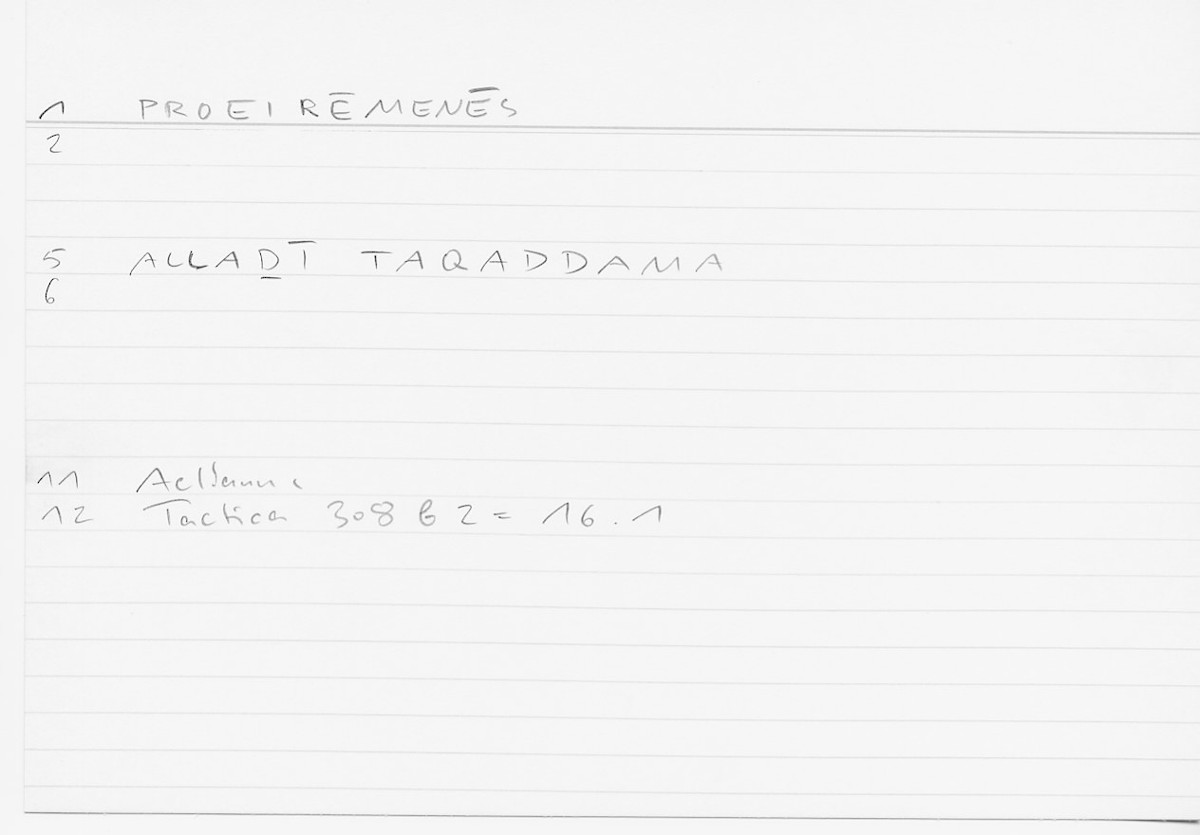 1 PROEIRĒMENĒS
2
5 ALLAḎĪ TAQADDAMA
6
11
12 Tactica 308 b 2 = 16.1